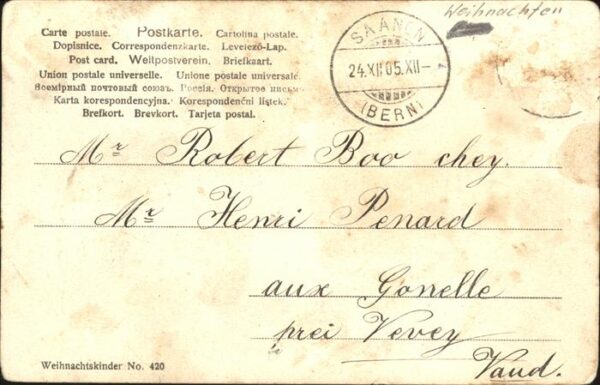 Weihnachten
Carte postale. Postkarte. Cartolina postale.
Dopisnice. Correspondenzkarte. Levelező-Lap.
Post card. Weltpostverein. Briefkaart.
Union postale universelle. Unione postale universale.
Всемірный почтовый союзъ. Россія. Открытое письмо.
Karta korespondencyjna. Korespondenční lístek.
Brefkort. Brevkort. Tarjeta postal.
SAANEN
24.XII 05.XII-
(BERN)
Mr Robert Boo chey.
Mr Henri Penard
aux Gonelle
prei Vevey
Vaud.
Weihnachtskinder No. 420